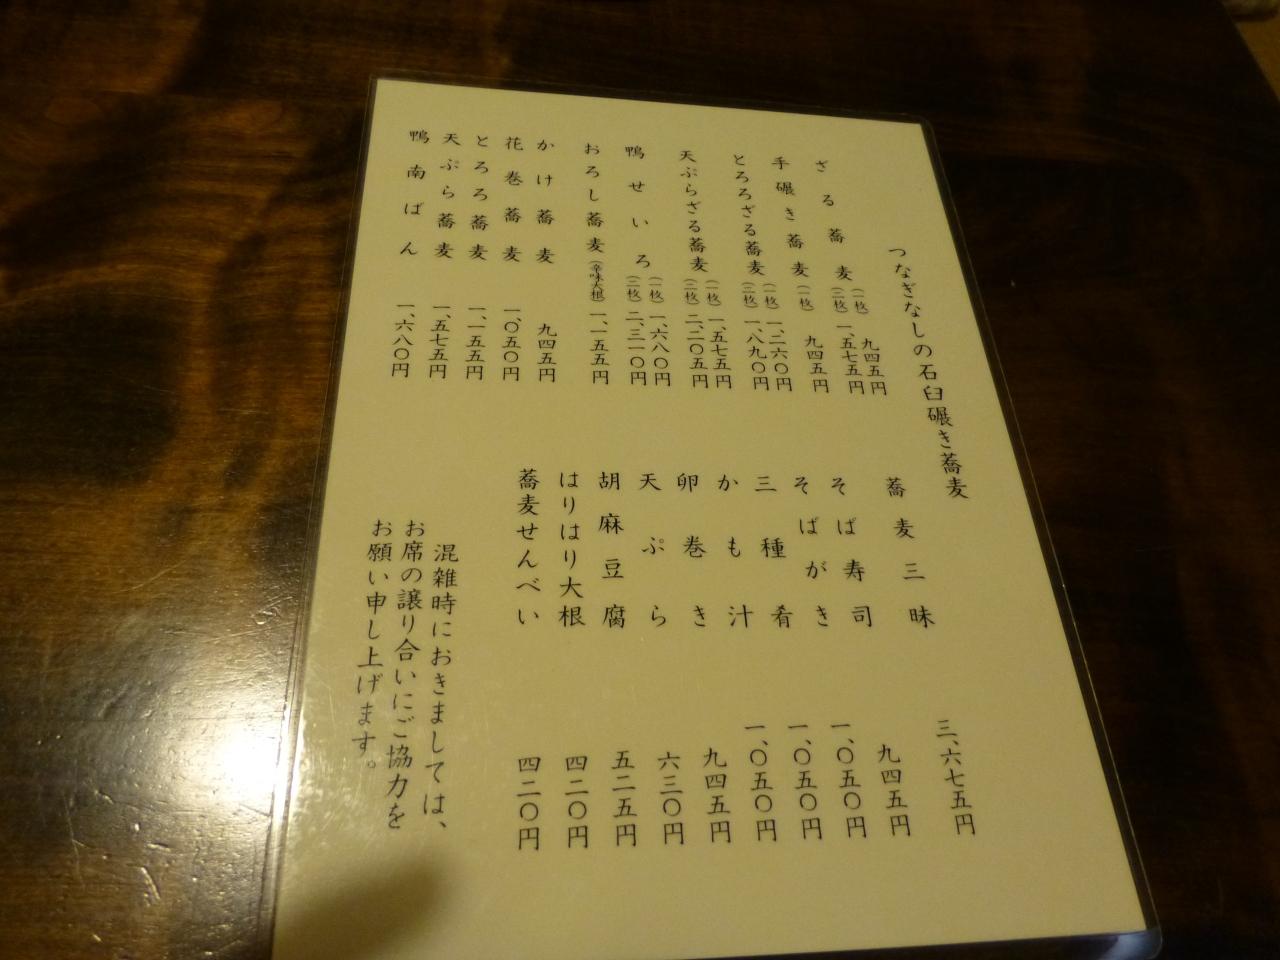 つなぎなしの石臼碾き蕎麦
ざる蕎麦 (一枚) 九四五円
(二枚) 一、五七五円
手碾き蕎麦 (一枚) 九四五円
とろろざる蕎麦 (一枚) 一、二六〇円
(二枚) 一、八九〇円
天ぷらざる蕎麦 (一枚) 一、五七五円
(二枚) 二、二〇五円
鴨せいろ (一枚) 一、六八〇円
(二枚) 二、三一〇円
おろし蕎麦 (辛味大根) 一、一五五円
かけ蕎麦 九四五円
花巻蕎麦 一、〇五〇円
とろろ蕎麦 一、一五五円
天ぷら蕎麦 一、五七五円
鴨南ばん 一、六八〇円
蕎麦三昧 三、六七五円
そば寿司 九四五円
そばがき 一、〇五〇円
三種肴 一、〇五〇円
かも汁 一、〇五〇円
卵巻き 九四五円
天ぷら 六三〇円
胡麻豆腐 五二五円
はりはり大根 四二〇円
蕎麦せんべい 四二〇円
混雑時におきましては、
お席の譲り合いにご協力を
お願い申し上げます。